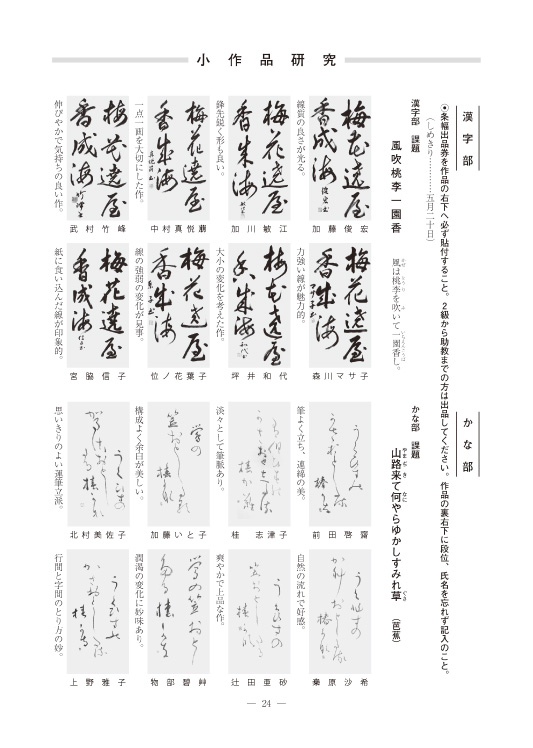 小作品研究
漢字部
かな部
◉条幅出品券を作品の右下へ必ず貼付すること。 2級から助教までの方は出品してください。 作品の裏右下に段位、氏名を忘れず記入のこと。
（しめきり…………五月二十日）
漢字部　課題
風吹桃李一園香
風は桃李を吹いて一園香し。
線質の良さが光る。
梅花遶屋香成海
加藤俊宏
鋒先鋭く形も良い。
梅花遶屋香成海
加川敏江
一点一画を大切にした作。
梅花遶屋香成海
中村真悦
伸びやかで気持ちの良い作。
梅花遶屋香成海
武村竹峰
力強い線が魅力的。
梅花遶屋香成海
森川マサ子
大小の変化を考えた作。
梅花遶屋香成海
坪井和代
線の強弱の変化が見事。
梅花遶屋香成海
位ノ花葉子
紙に食い込んだ線が印象的。
梅花遶屋香成海
宮脇信子
かな部　課題
山路来て何やらゆかしすみれ草　（芭蕉）
筆よく立ち、連綿の美。
前田啓齋
淡々として筆脈あり。
桂志津子
構成よく余白が美しい。
加藤いと子
思いきりのよい運筆立派。
北村美佐子
自然の流れで好感。
桒原沙希
爽やかで上品な作。
辻田亜砂
潤渇の変化に妙味あり。
物部碧艸
行間と字間のとり方の妙。
上野雅子
— 24 —